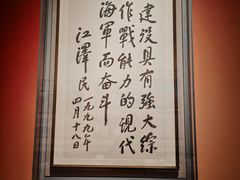 建设具有強大综
作戰能力的現代
海軍而奋斗
江澤民
一九九九年
四月十八日